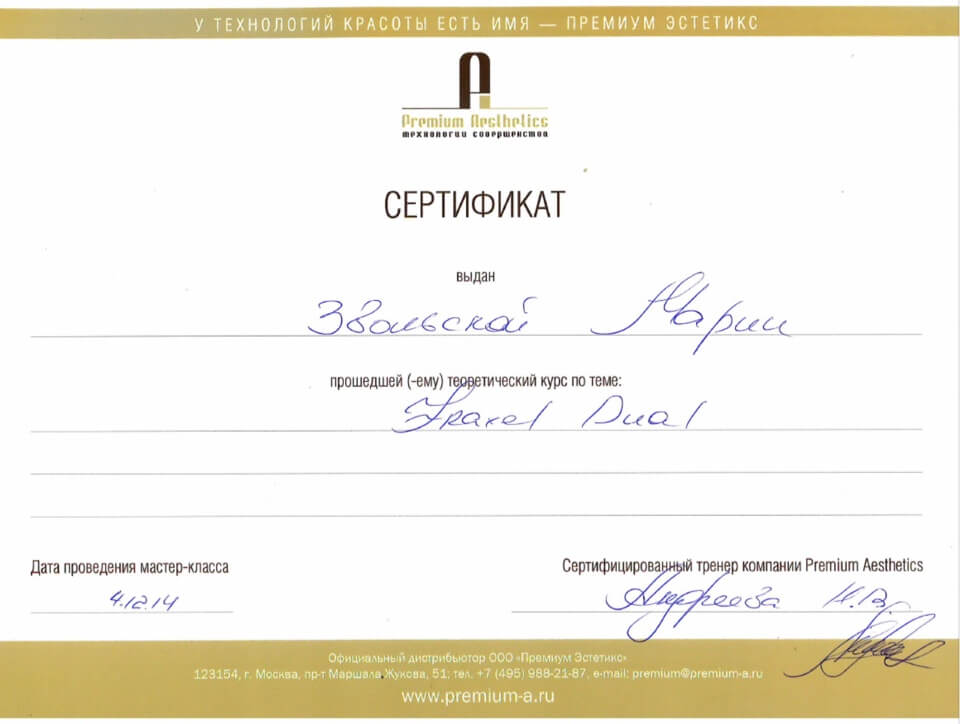 У ТЕХНОЛОГИЙ КРАСОТЫ ЕСТЬ ИМЯ — ПРЕМИУМ ЭСТЕТИКС
Premium Aesthetics
технологии совершенства
СЕРТИФИКАТ
выдан
Звольской Марии
прошедшей (-ему) теоретический курс по теме:
Fraxel Dual
Дата проведения мастер-класса
Сертифицированный тренер компании Premium Aesthetics
4.12.14
Андреева Н.В.
Официальный дистрибьютор ООО «Премиум Эстетикс»
123154, г. Москва, пр-т Маршала Жукова, 51; тел. +7 (495) 988-21-87, e-mail: premium@premium-a.ru
www.premium-a.ru